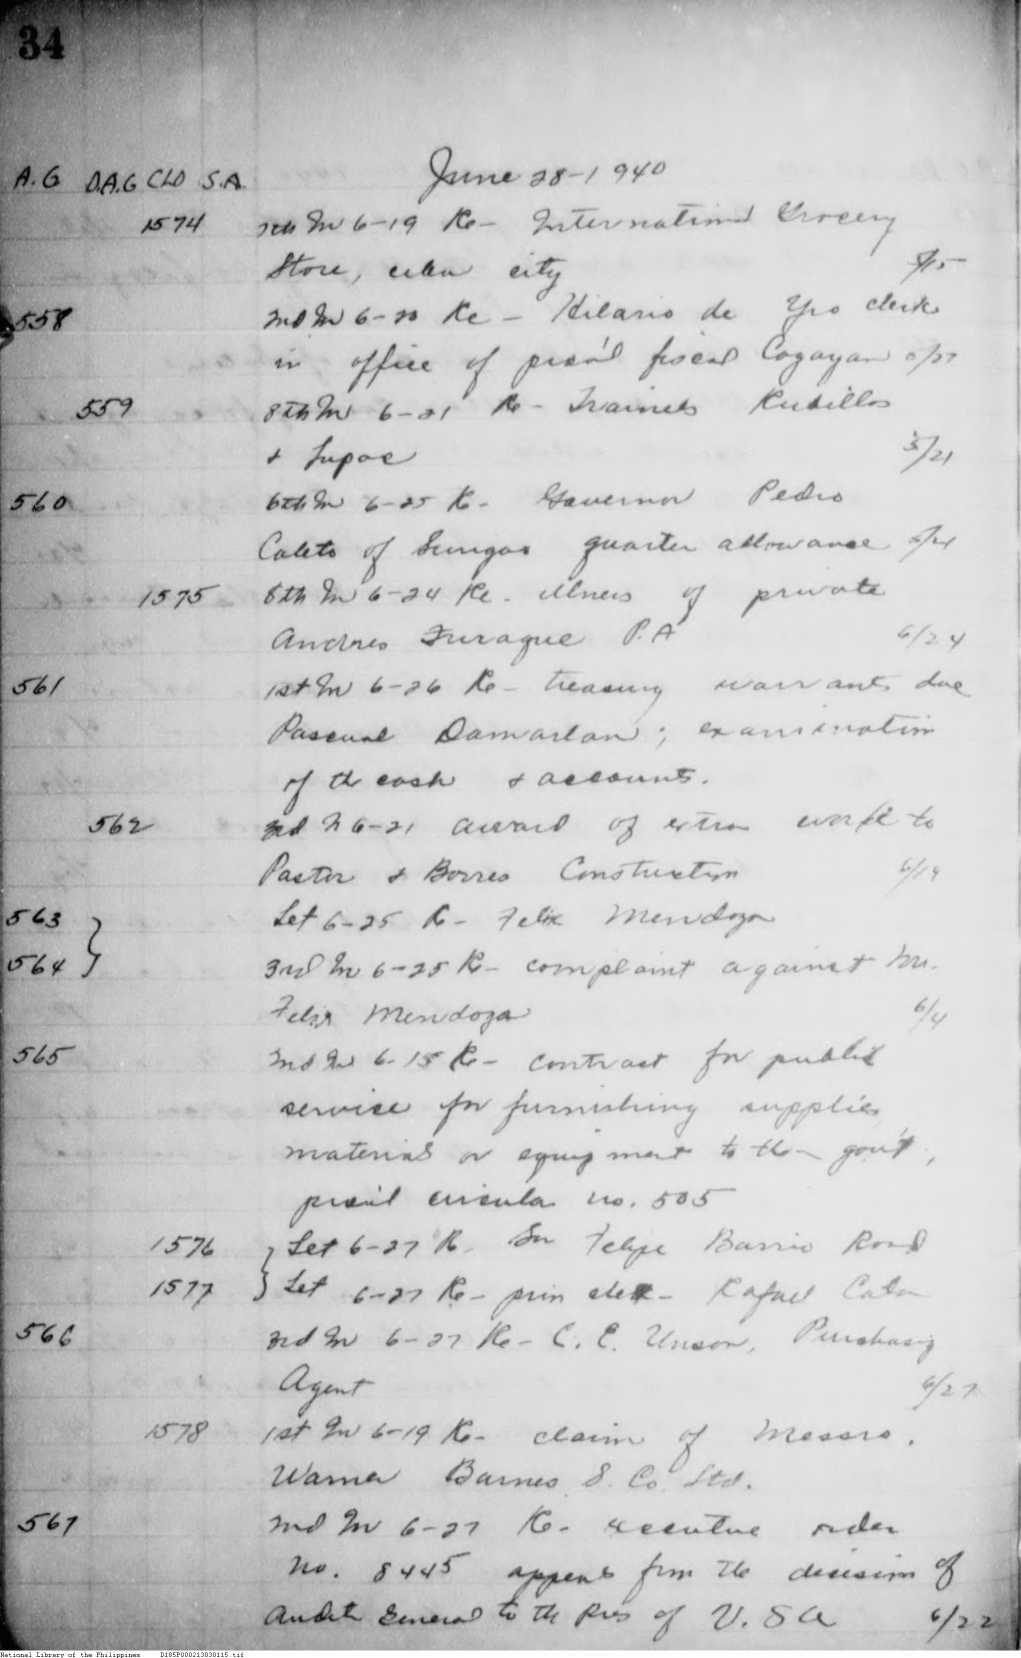 34
June 28-1940
A.G D.A.G CLD S.A.
1574 7th In 6-19 Re- International Grocery
Store, cebu city
558 2nd In 6-20 Re - Hilario de Yro clerk
in office of prov'l fiscal Cagayan 5/27
559 8th In 6-21 Re- Trainees Rubillos
& Lupac 5/21
560 6th In 6-25 Re- Governor Pedro
of quarter allowance
1575 8th In 6-24 Re. illness of private
Andres P.A 6/24
561 1st In 6-26 Re- treasury warrants due
Pascual Damaslan; examination
of the cash & accounts.
562 3rd In 6-21 award of extra work to
Pastor & Borres Construction 6/19
563 Let 6-25 Re- Felix Mendoza
564 3rd In 6-25 Re- complaint against Mr.
Felix Mendoza 6/4
565 2nd In 6-15 Re- contract for public
service for furnishing supplies
material or equipment to the gov't,
prov'l circular no. 505
1576 Let 6-27 Re. San Felipe Barrio Road
1577 Let 6-27 Re- prin clerk- Rafael
566 3rd In 6-27 Re- C. E. Unson, Purchasing
Agent 6/27
1578 1st In 6-19 Re- claim of Messrs.
Warner Barnes & Co. Ltd.
567 2nd In 6-27 Re- executive order
no. 8445 appeals from the decision of
Auditor General to the Pres of U.S.A 6/22
National Library of the Philippines D185P000213030115.tif